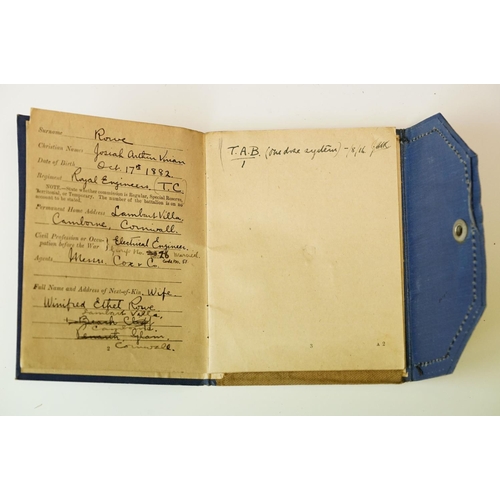 Surname Rowe
Christian Names Josiah Arthur
Date of Birth Oct. 17th 1882.
Regiment Royal Engineers, (T.C.)
NOTE.—State whether commission is Regular, Special Reserve,
Territorial, or Temporary. The number of the battalion is on no
account to be stated.
Permanent Home Address Lambert Villa
Camborne, Cornwall.
Civil Profession or Occu-
pation before the War } Electrical Engineer.
26 married
Agents Messrs. Cox & Co.
Full Name and Address of Next-of-Kin Wife
Winifred Ethel Rowe
Villa,
Cornwall.
2
T.A.B. (one dose system) - /8/16
1
3
A 2